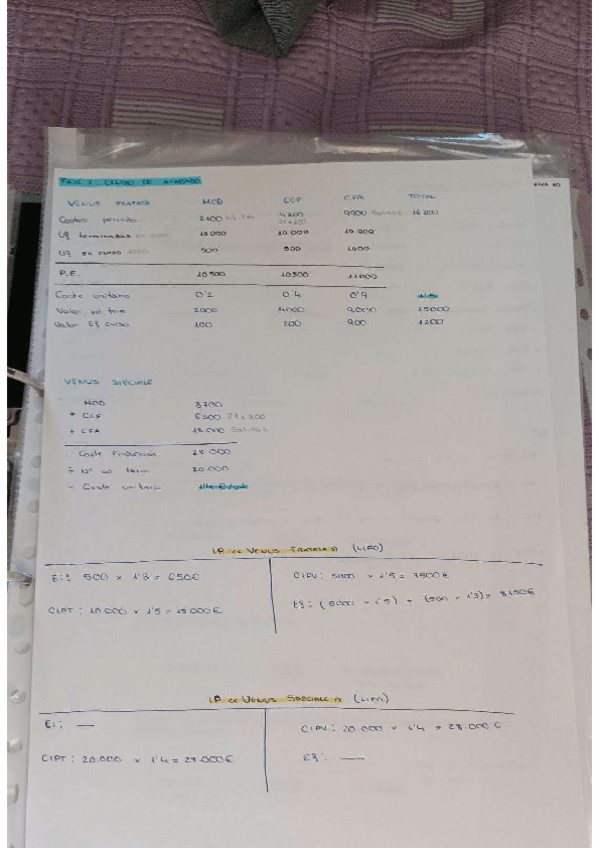 FASE 2: CENTRO DE ACABADO
VENUS TRATATA MOD CCF CFA TOTAL
Costes periodo 2100 4200 9900 Salidas 16200
Uf terminadas 10 000 10 000 10 000 10.000
Uf en curso 1000 500 500 1000
P.E. 10 500 10500 11000
Coste unitario 0'2 0'4 0'9 1'5
Valor ud term 2000 4000 9000 15000
Valor Ef curso 100 200 900 1200
VENUS SPECIALE
MOD 3700
+ CCF 6300 21 x 300
+ CFA 18.000 Salidas
Coste Producción 28.000
÷ Nº ud. term 20.000
= Coste unitario
I.P cc VENUS TRATATA (LIFO)
Ei: 500 x 1'3 = 650€
CIPV: 5000 x 1'5 = 7500€
CIPT: 10.000 x 1'5 = 15.000€
Ef: (5000 x 1'5) + (500 x 1'3) = 8150€
I.P cc VENUS SPECIALE (LIFO)
Ei: —
CIPV: 20.000 x 1'4 = 28.000€
CIPT: 20.000 x 1'4 = 28.000€
Ef: —